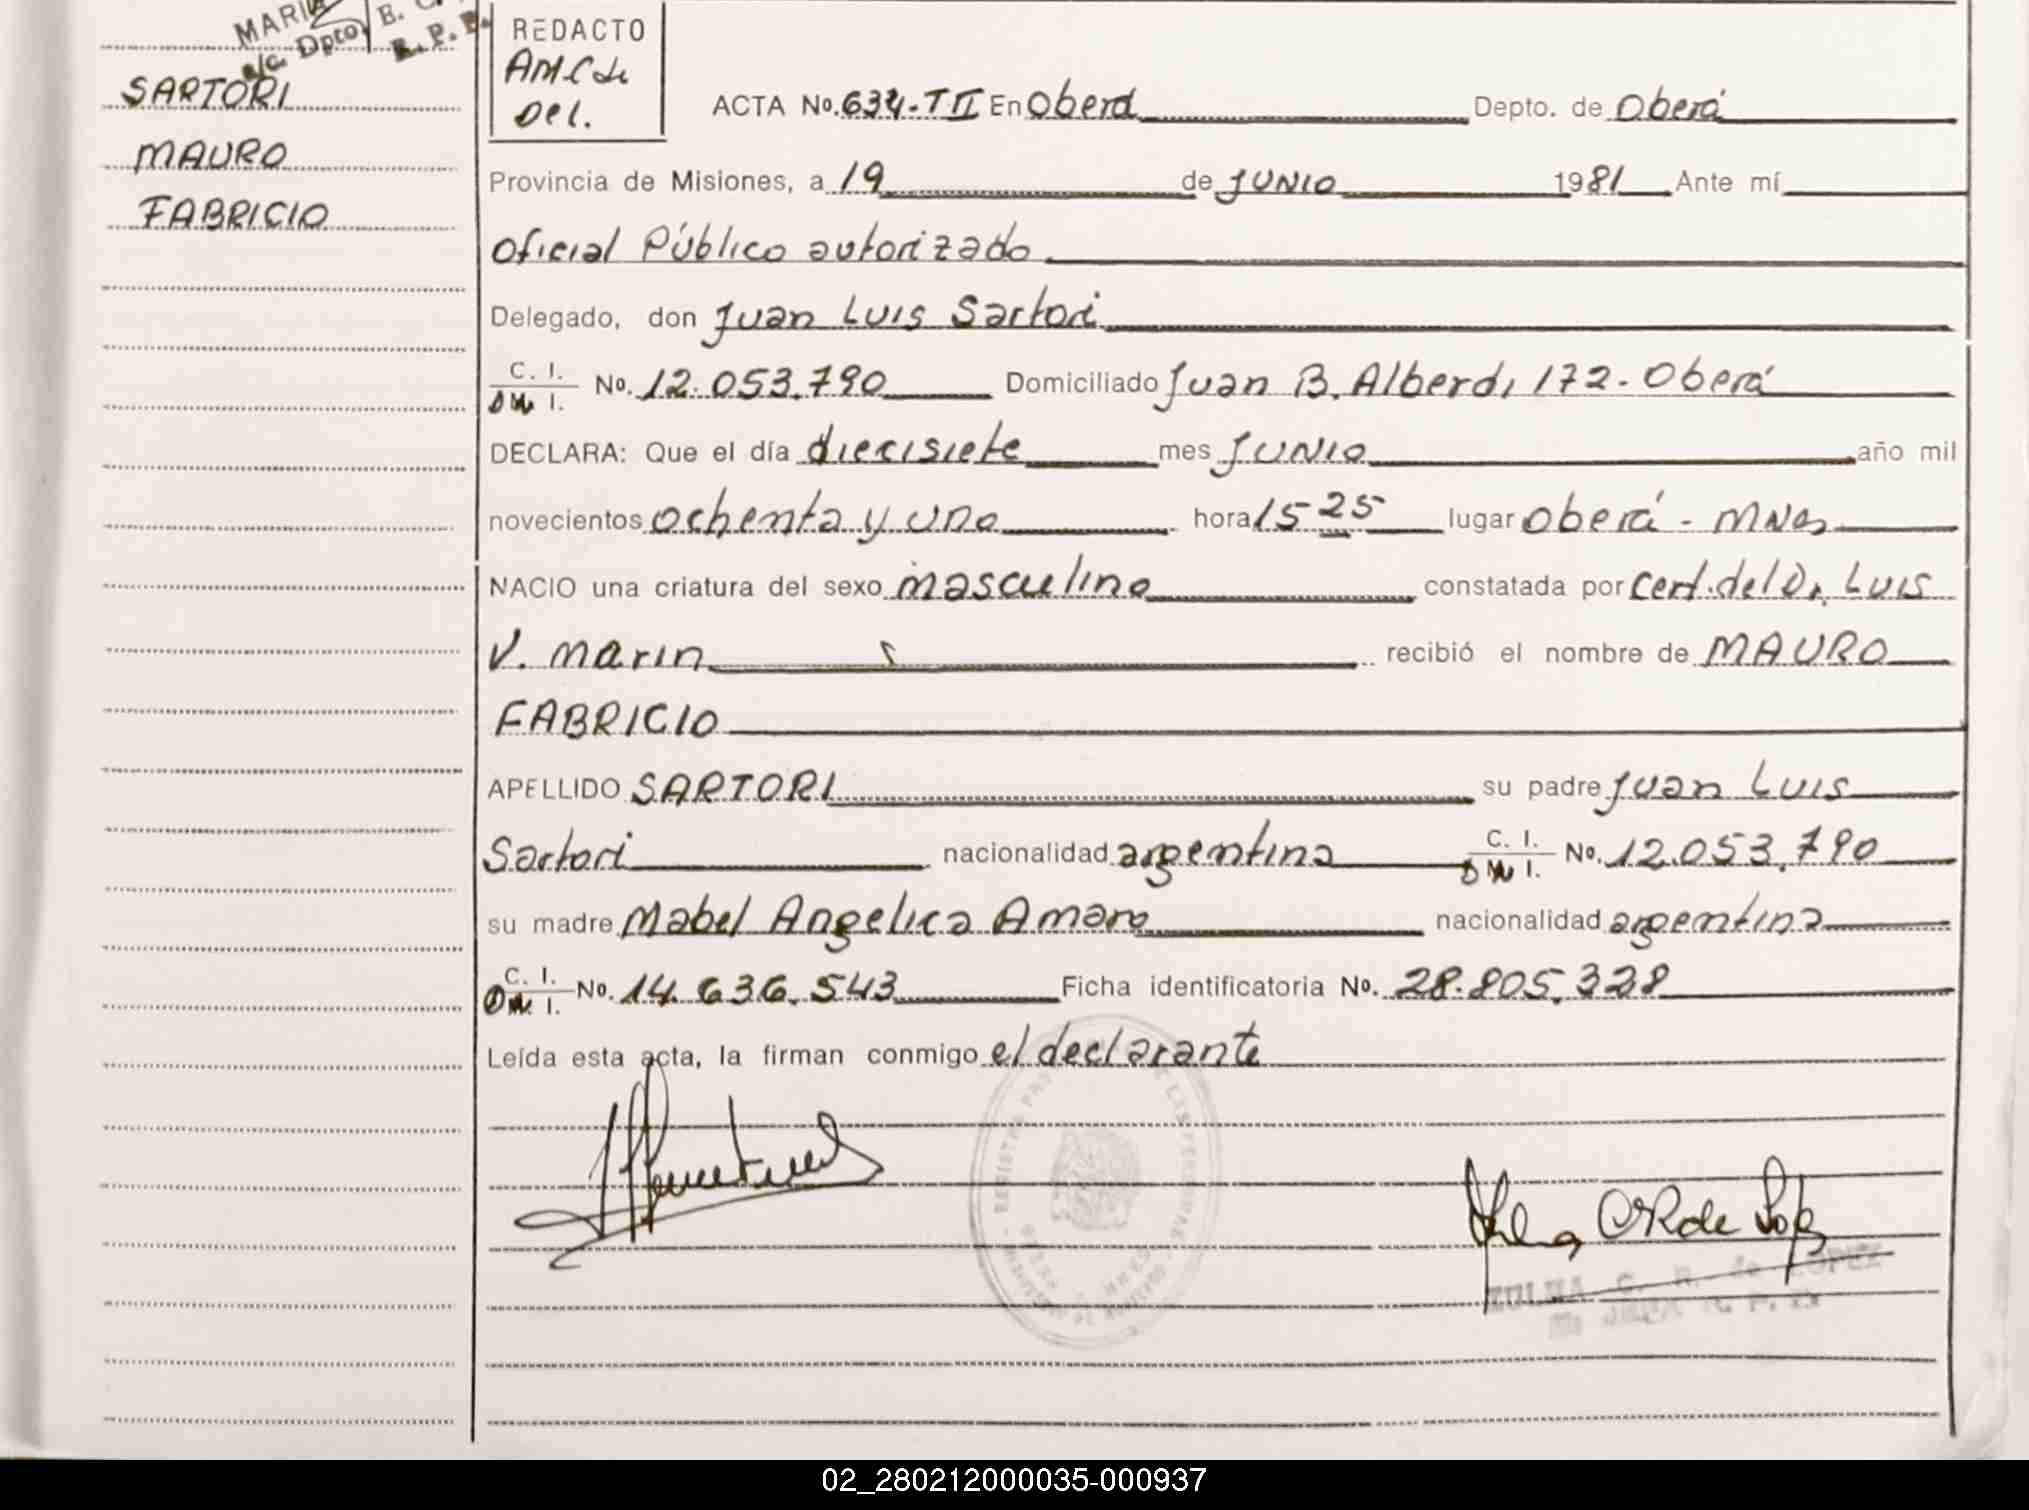 MARIA
a/c. Dpto. B. C.
R. P. P.
SARTORI
MAURO
FABRICIO
REDACTO
Del.
ACTA No. 634-TII En Oberá Depto. de Oberá
Provincia de Misiones, a 19 de JUNIO 1981 Ante mí
Oficial Público autorizado
Delegado, don Juan Luis Sartori
C. I. D.N.I. No. 12.053.790 Domiciliado Juan B. Alberdi 172 - Oberá
DECLARA: Que el día diecisiete mes JUNIO año mil
novecientos ochenta y uno hora 15 25 lugar Oberá - Mnes
NACIO una criatura del sexo masculino constatada por cert. del Dr. Luis
V. Marin recibió el nombre de MAURO
FABRICIO
APELLIDO SARTORI su padre Juan Luis
Sartori nacionalidad argentina C. I. D.N.I. No. 12.053.790
su madre Mabel Angelica Amaro nacionalidad argentina
C. I. D.N.I. No. 14.636.543 Ficha identificatoria No. 28.805.328
Leída esta acta, la firman conmigo el declarante
ZULMA C. R. de LOPEZ
02_280212000035-000937